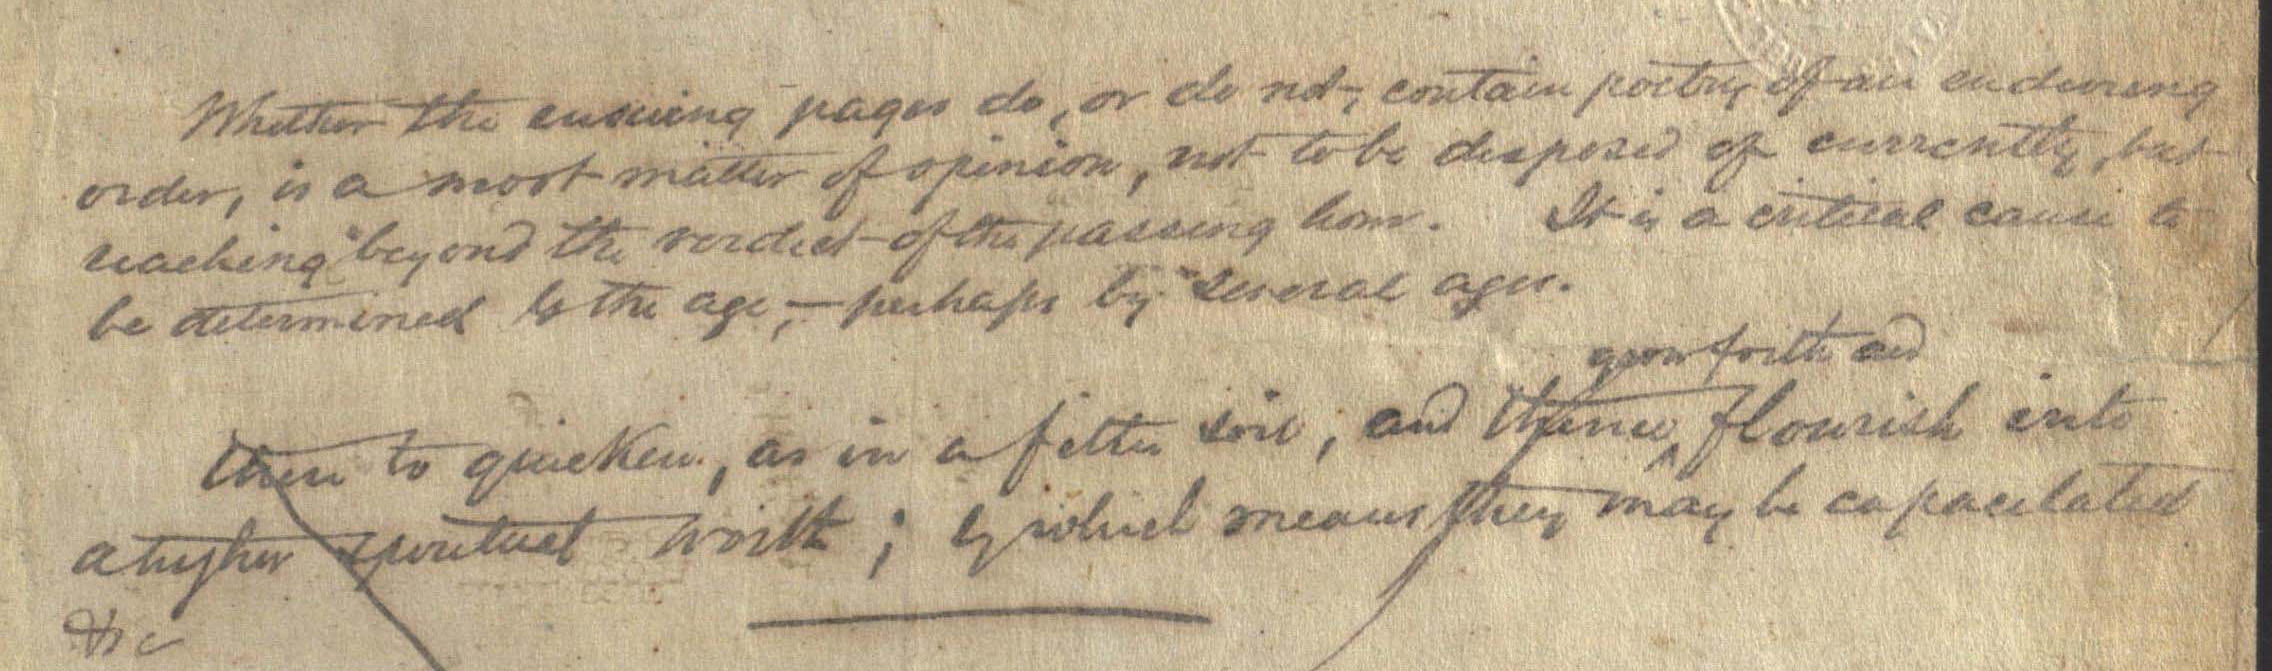 Whether the ensuing pages do, or do not, contain poetry of an enduring
order, is a moot matter of opinion, not to be disposed of currently, but
reaching beyond the verdict of the passing hour. It is a critical cause to
be determined by the age, — perhaps by several ages.
grow forth and
there to quicken, as in a fitter soil, and thence, flourish into
a higher spiritual worth; by which means they may be capacitated
&c